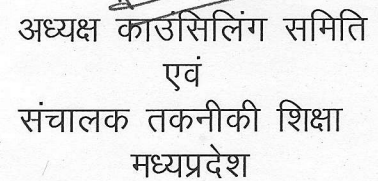 अध्यक्ष काउंसिलिंग समिति
एवं
संचालक तकनीकी शिक्षा
मध्यप्रदेश